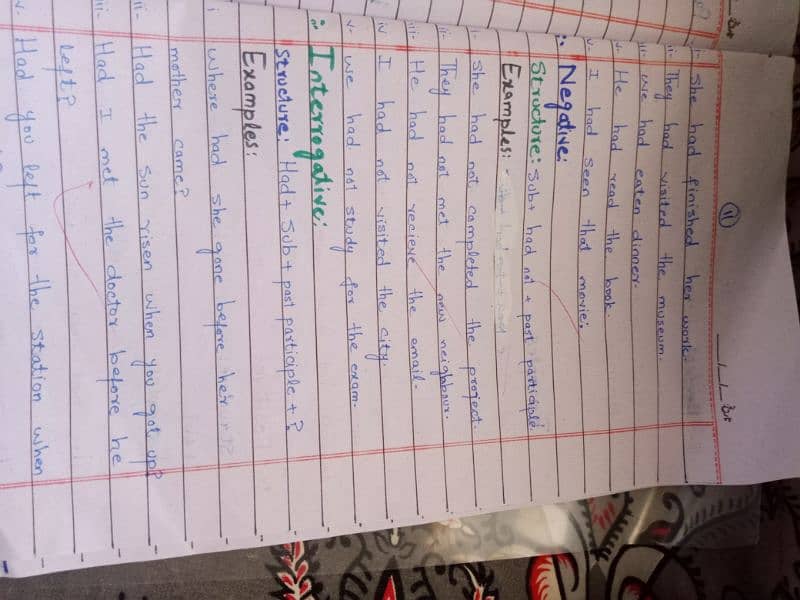 11
i- She had finished her work.
ii- They had visited the museum.
iii- We had eaten dinner.
v- He had read the book.
v- I had seen that movie.
Negative:
Structure: Sub+ had not + past participle.
Examples:
i- She had not completed the project.
ii- They had not met the new neighbour.
iii- He had not recieve the email.
iv I had not visited the city.
v- we had not study for the exam.
Interrogative:
Structure: Had + Sub + past participle + ?
Examples:
i where had she gone before her
mother came?
ii- Had the sun risen when you got up?
iii- Had I met the doctor before he
left?
v. Had you left for the station when